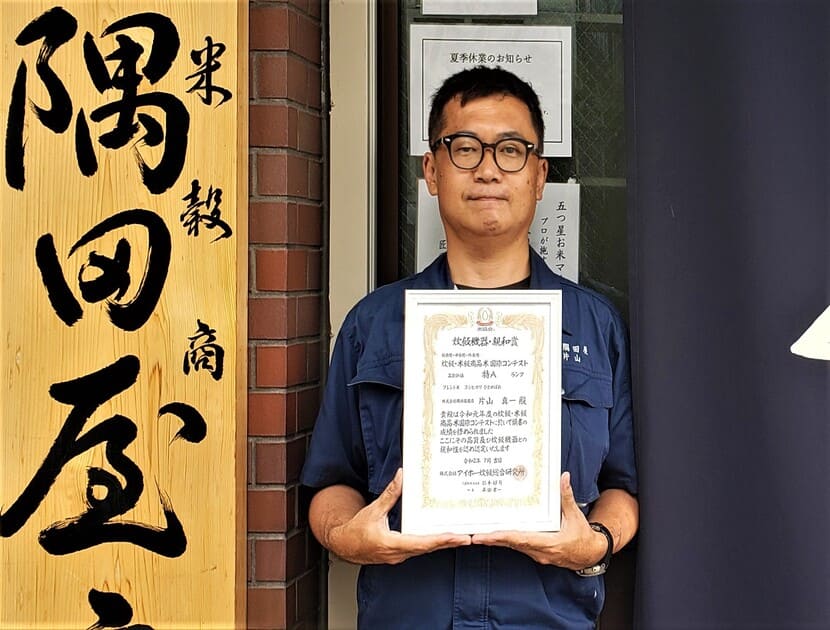 米穀商
隅田屋商
夏季休業のお知らせ
五つ星お米マ
プロが施
匠
隅田屋
片山
炊飯機器・親和賞
炊飯・米飯商品米国際コンテスト
特A ランク
片山 真一 殿
貴殿は令和元年度の炊飯・米飯
商品米国際コンテストに於いて頭書の
成績を修められました
ここにその品質及び炊飯機器との
親和性を認め認定いたします
令和2年 7月 吉日
株式会社アイホー炊飯総合研究所